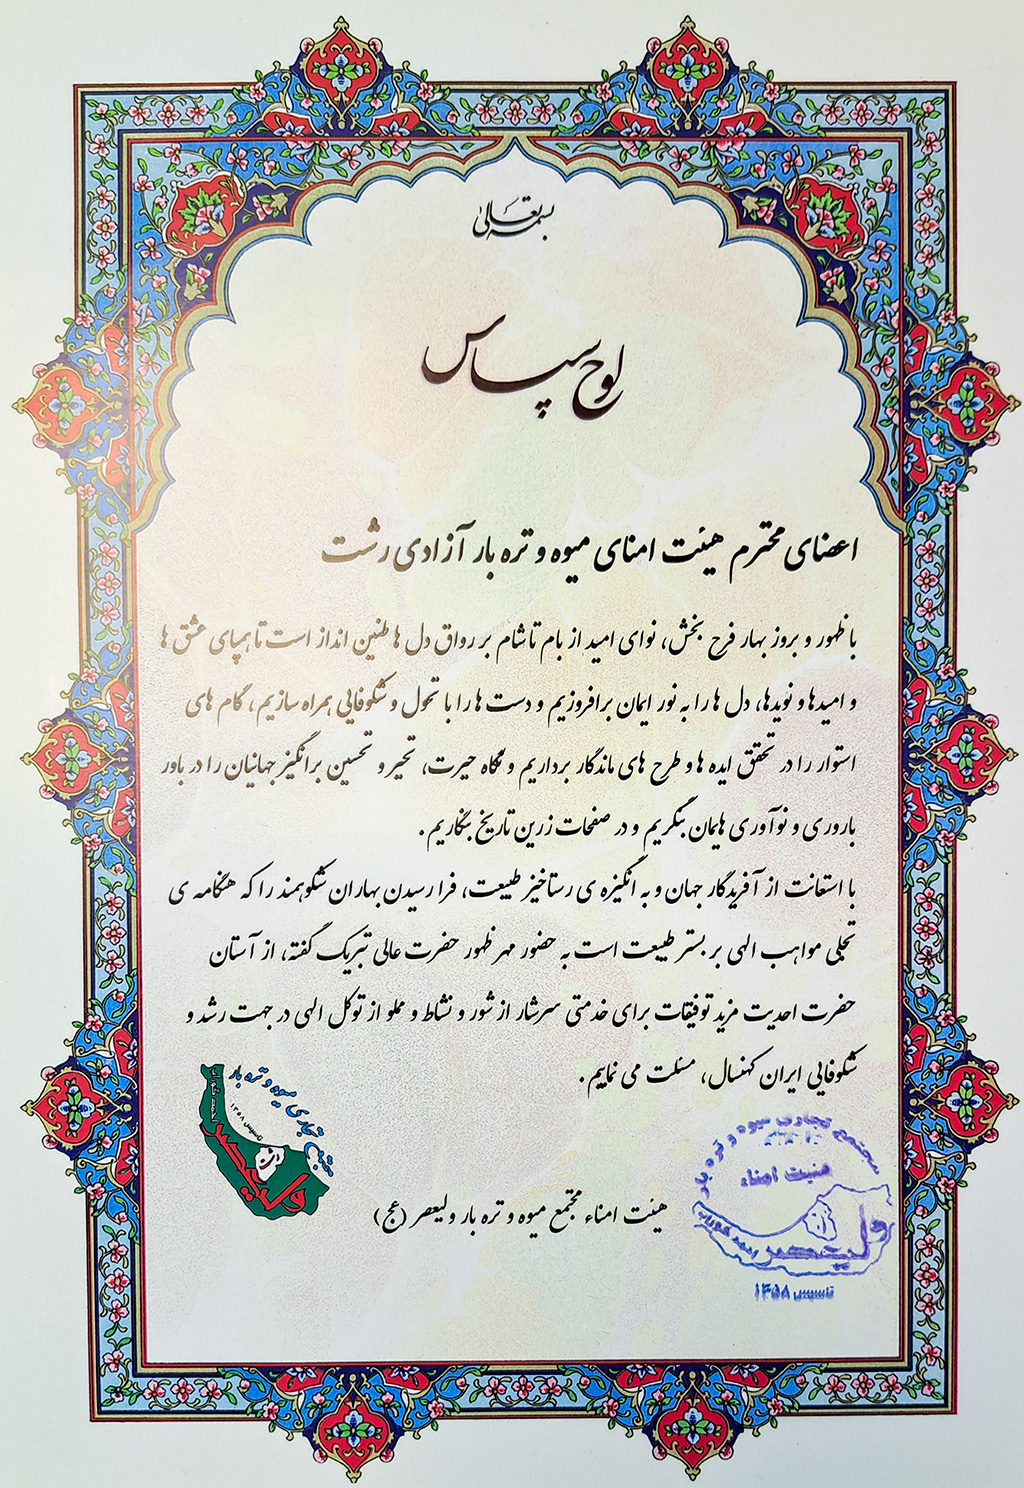 بسمه تعالی
لوح سپاس
اعضای محترم هیئت امنای میوه و تره بار آزادی رشت
با ظهور و بروز بهار فرح بخش، نوای امید از بام تا شام بر رواق دل ها طنین انداز است تا همپای عشق ها
و امیدها و نویدها، دل ها را به نور ایمان برافروزیم و دست ها را با تحول و شکوفایی همراه سازیم، گام های
استوار را در تحقق ایده ها و طرح های ماندگار برداریم و نگاه حیرت، تحیر و تحسین برانگیز جهانیان را در باور
باروری و نوآوری هایمان بنگریم و در صفحات زرین تاریخ بنگاریم.
با استعانت از آفریدگار جهان و به انگیزه ی رستاخیز طبیعت، فرا رسیدن بهاران شکوهمند را که هنگامه ی
تجلی مواهب الهی بر بستر طبیعت است به حضور مهر ظهور حضرت عالی تبریک گفته، از آستان
حضرت احدیت مزید توفیقات برای خدمتی سرشار از شور و نشاط و مملو از توکل الهی در جهت رشد و
شکوفایی ایران کهنسال، مسئلت می نماییم.
مجتمع تجاری میوه و تره بار
تاسیس ۱۳۵۸
رشت
ولیعصر
هیئت امناء مجتمع میوه و تره بار ولیعصر (عج)
مجتمع تجاری میوه و تره بار
هیئت امناء
ولیعصر
تاسیس ۱۳۵۸